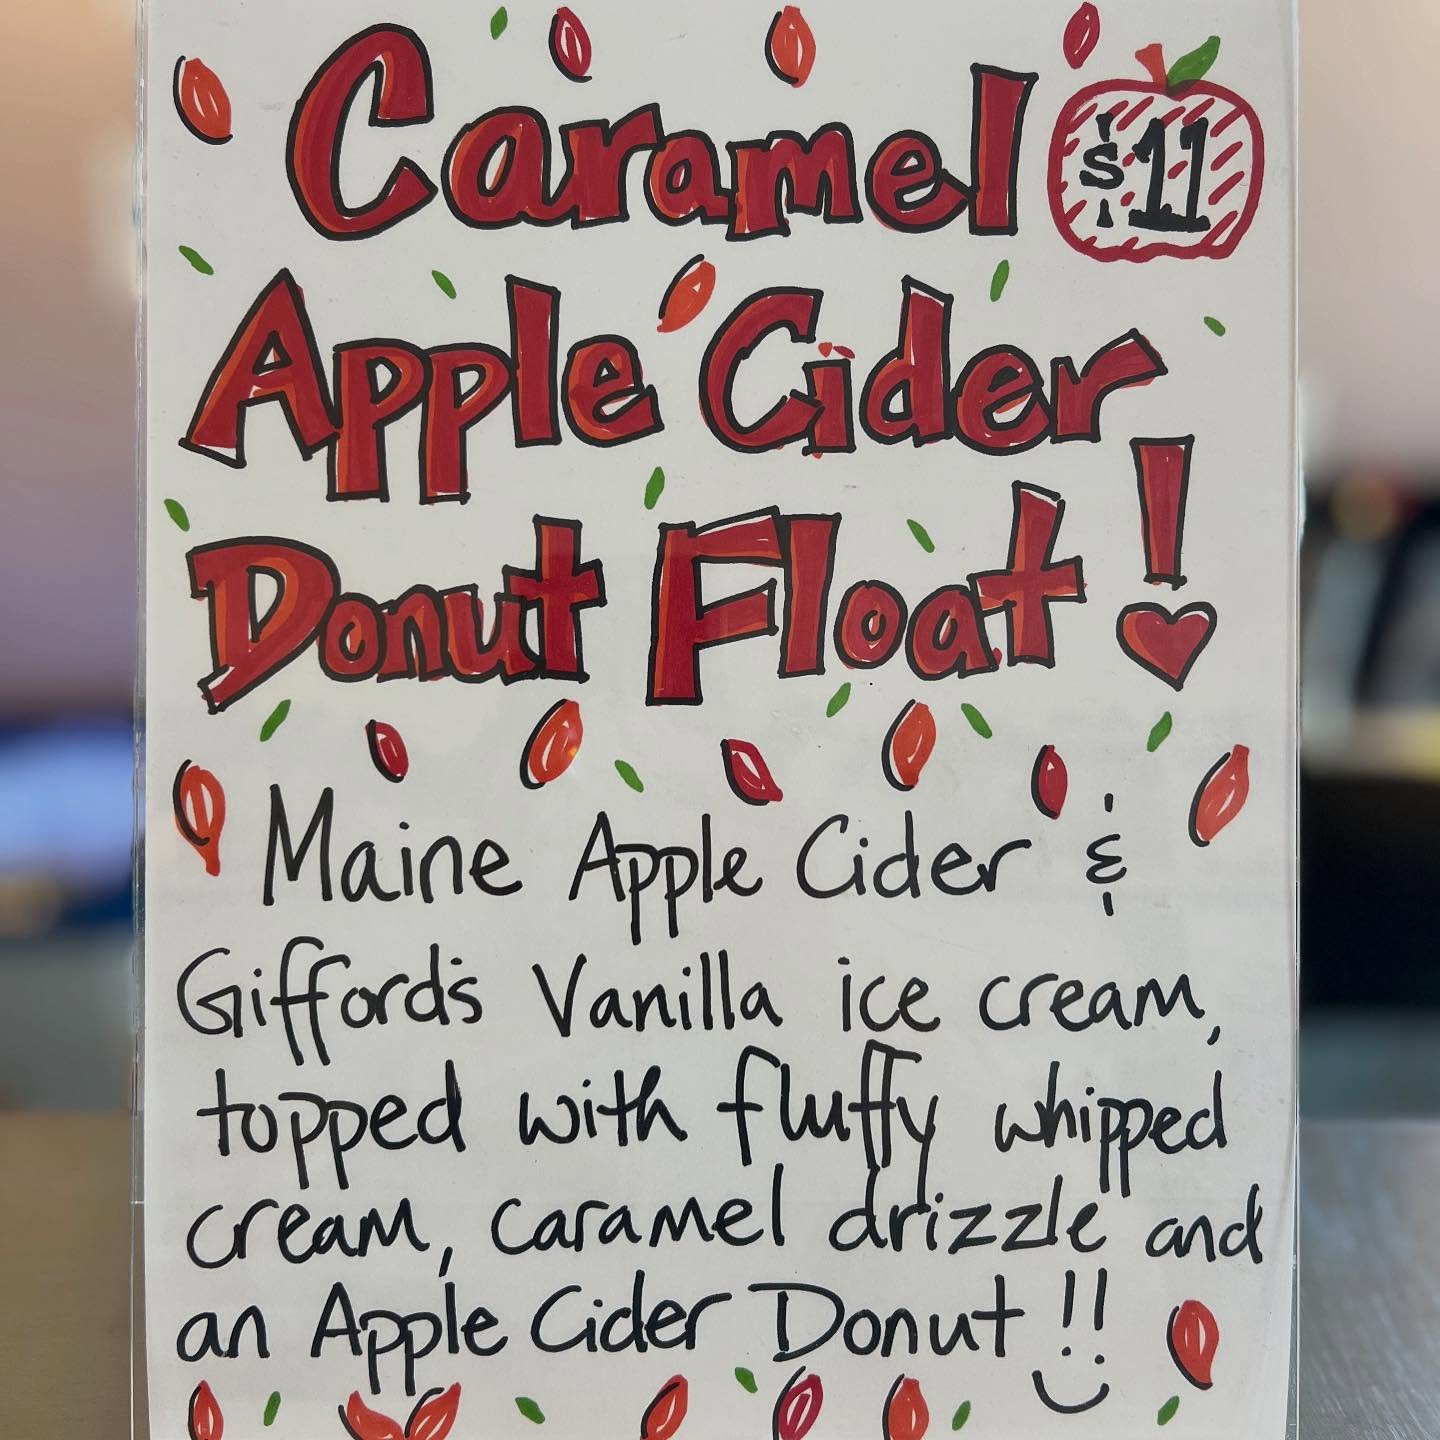 Caramel $11
Apple Cider
Donut Float!
Maine Apple Cider &
Gifford's Vanilla ice cream,
topped with fluffy whipped
cream, caramel drizzle and
an Apple Cider Donut!!